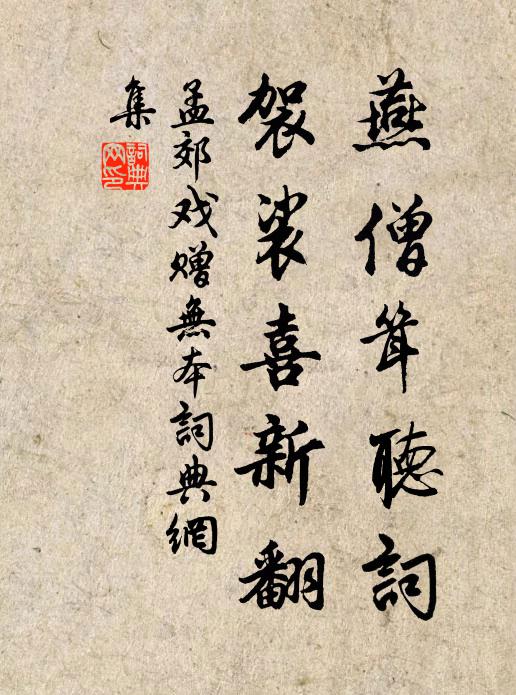 燕僧聳聽詞
袈裟喜新翻
孟郊戏贈無本詞典網
集
詞典網印